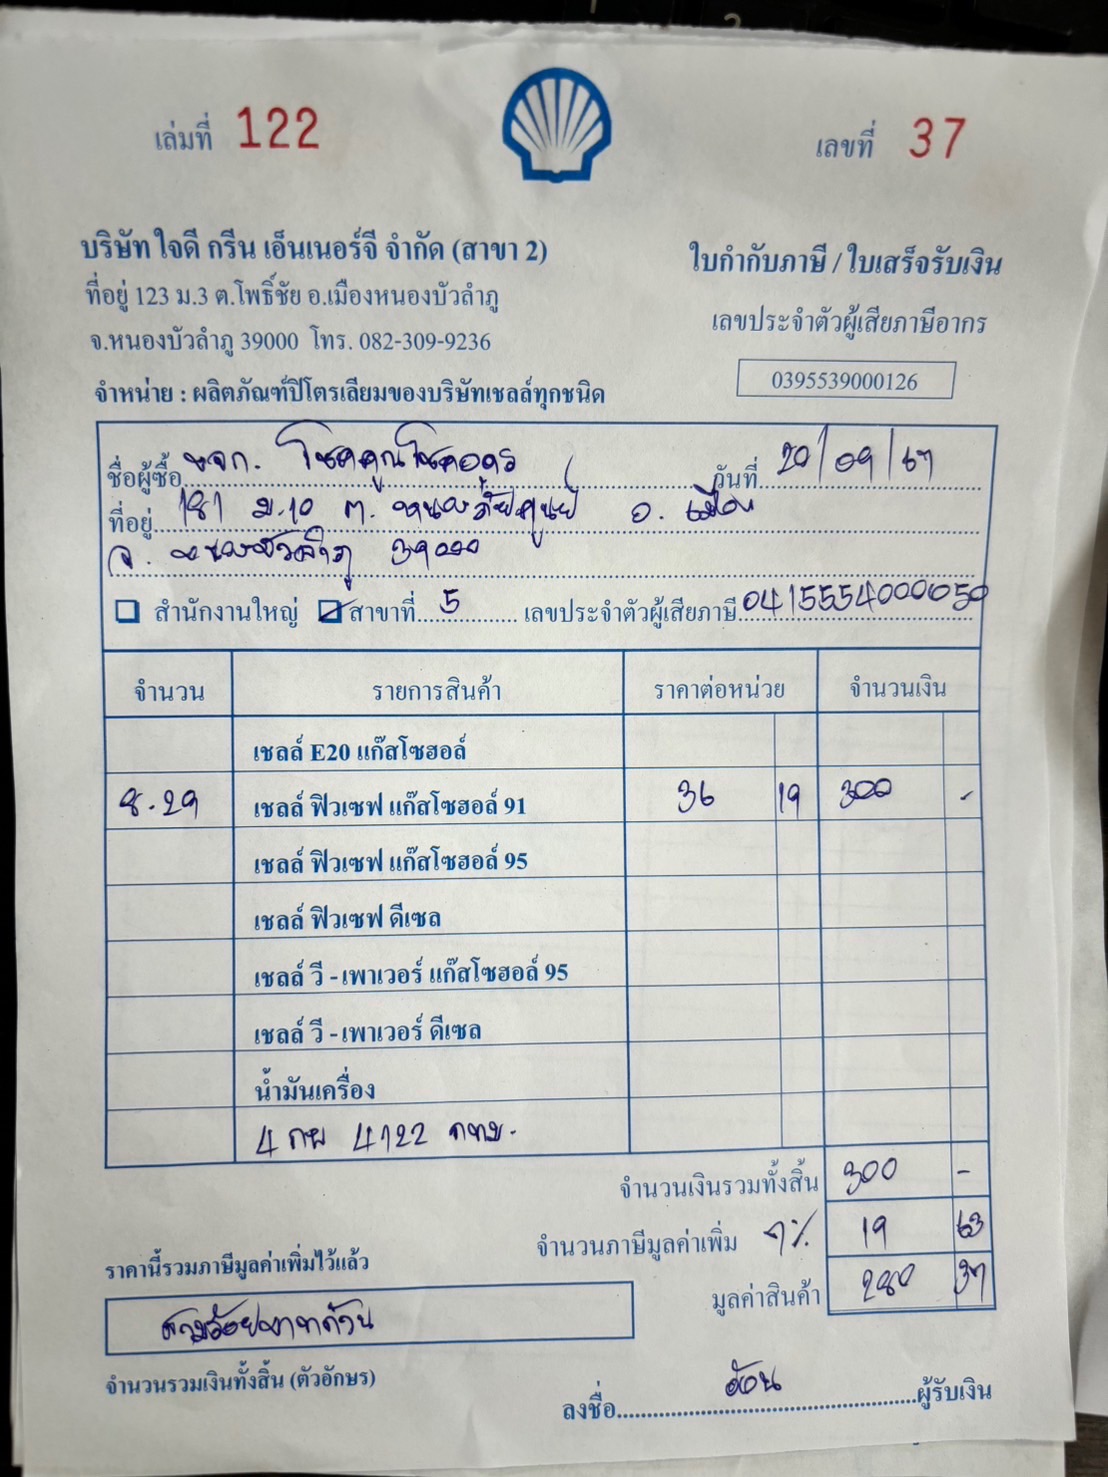 เล่มที่ 122
เลขที่ 37
บริษัท ใจดี กรีน เอ็นเนอร์จี จำกัด (สาขา 2)
ใบกำกับภาษี / ใบเสร็จรับเงิน
ที่อยู่ 123 ม.3 ต.โพธิ์ชัย อ.เมืองหนองบัวลำภู
เลขประจำตัวผู้เสียภาษีอากร
จ.หนองบัวลำภู 39000 โทร. 082-309-9236
0395539000126
จำหน่าย : ผลิตภัณฑ์ปิโตรเลียมของบริษัทเชลล์ทุกชนิด
ชื่อผู้ซื้อ หจก. โชคคูณโชคอุดร วันที่ 20/09/67
ที่อยู่ 181 ม.10 ต. หนองภัยศูนย์ อ. เมือง
จ. หนองบัวลำภู 39000
สำนักงานใหญ่ สาขาที่ 5 เลขประจำตัวผู้เสียภาษี 0415554000050
จำนวน รายการสินค้า ราคาต่อหน่วย จำนวนเงิน
เชลล์ E20 แก๊สโซฮอล์
8.29 เชลล์ ฟิวเซฟ แก๊สโซฮอล์ 91 36 19 300 -
เชลล์ ฟิวเซฟ แก๊สโซฮอล์ 95
เชลล์ ฟิวเซฟ ดีเซล
เชลล์ วี - เพาเวอร์ แก๊สโซฮอล์ 95
เชลล์ วี - เพาเวอร์ ดีเซล
น้ำมันเครื่อง
4 กผ 4122 กทม.
จำนวนเงินรวมทั้งสิ้น 300 -
จำนวนภาษีมูลค่าเพิ่ม 7% 19 63
ราคานี้รวมภาษีมูลค่าเพิ่มไว้แล้ว
มูลค่าสินค้า 280 37
สามร้อยบาทถ้วน
จำนวนรวมเงินทั้งสิ้น (ตัวอักษร)
ลงชื่อ ผู้รับเงิน